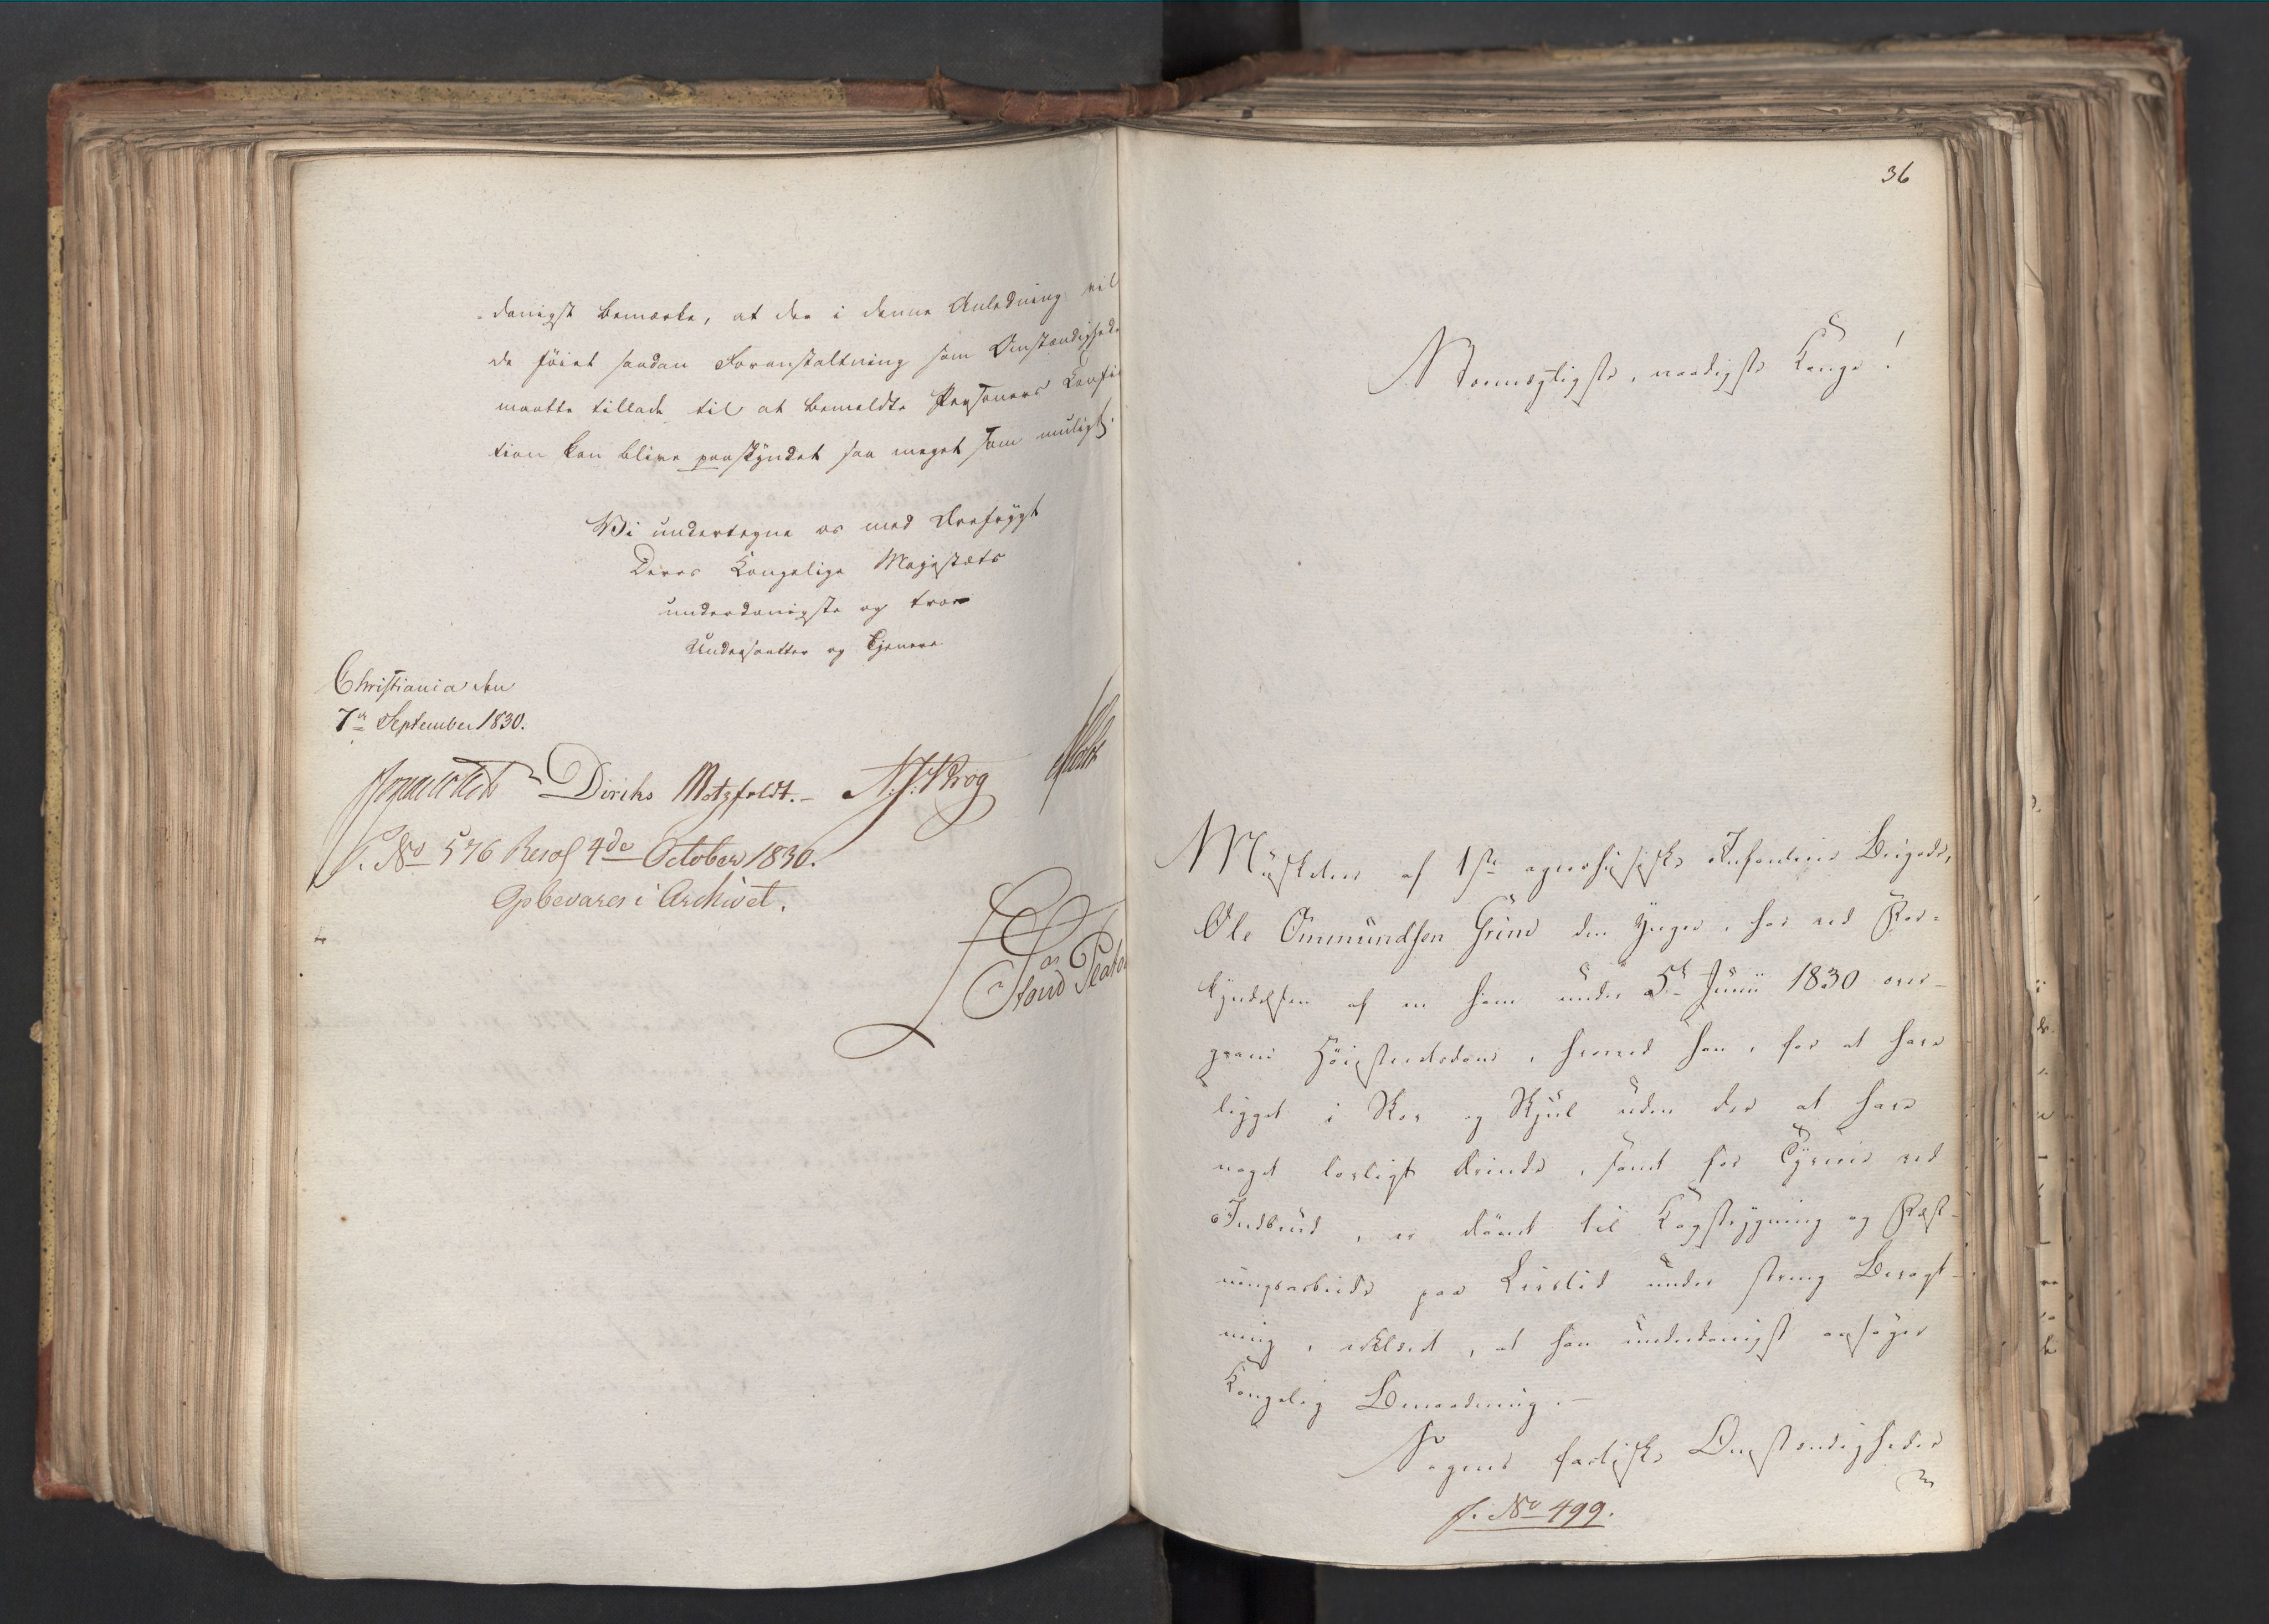 danigst bemærke, at der i denne Anledning vil
de føiet saadan Foranstaltning som Omstændighede
maatte tillade til at bemeldte Personers Confir
tion kan blive paaskyndet saa meget som muligt.
Vi undertegne os med Ærefrygt
Deres Kongelige Majestæts
underdanigste og troe
Undersaatter og Tjenere
Christiania den
7de September 1830.
Diriks Motzfeldt. N. J. Krog
J. No 576 Resol 4de October 1830.
Opbevares i Archivet.
36
Stormægtigste, naadigste Konge!
Musketeer af 1ste agershusiske Infanterie Brigade,
Ole Ommundsen Grim den yngre, har ved For-
kyndelsen af en ham under 5te Junii 1830 over-
gaaet Höiesteretsdom, hvorved han, for at have
ligget i Skov og Skjul uden der at have
noget lovligt Ærinde, samt for Tyverie ved
Indbrud, er dömt til Kagstrygning og Fæst-
ningsarbeide paa Livstid under streng Bevogt-
ning, erklæret, at han underdanigst ansøger
Kongelig Benaadning.-
Sagens factiske Omstændigheder
J. No 499.